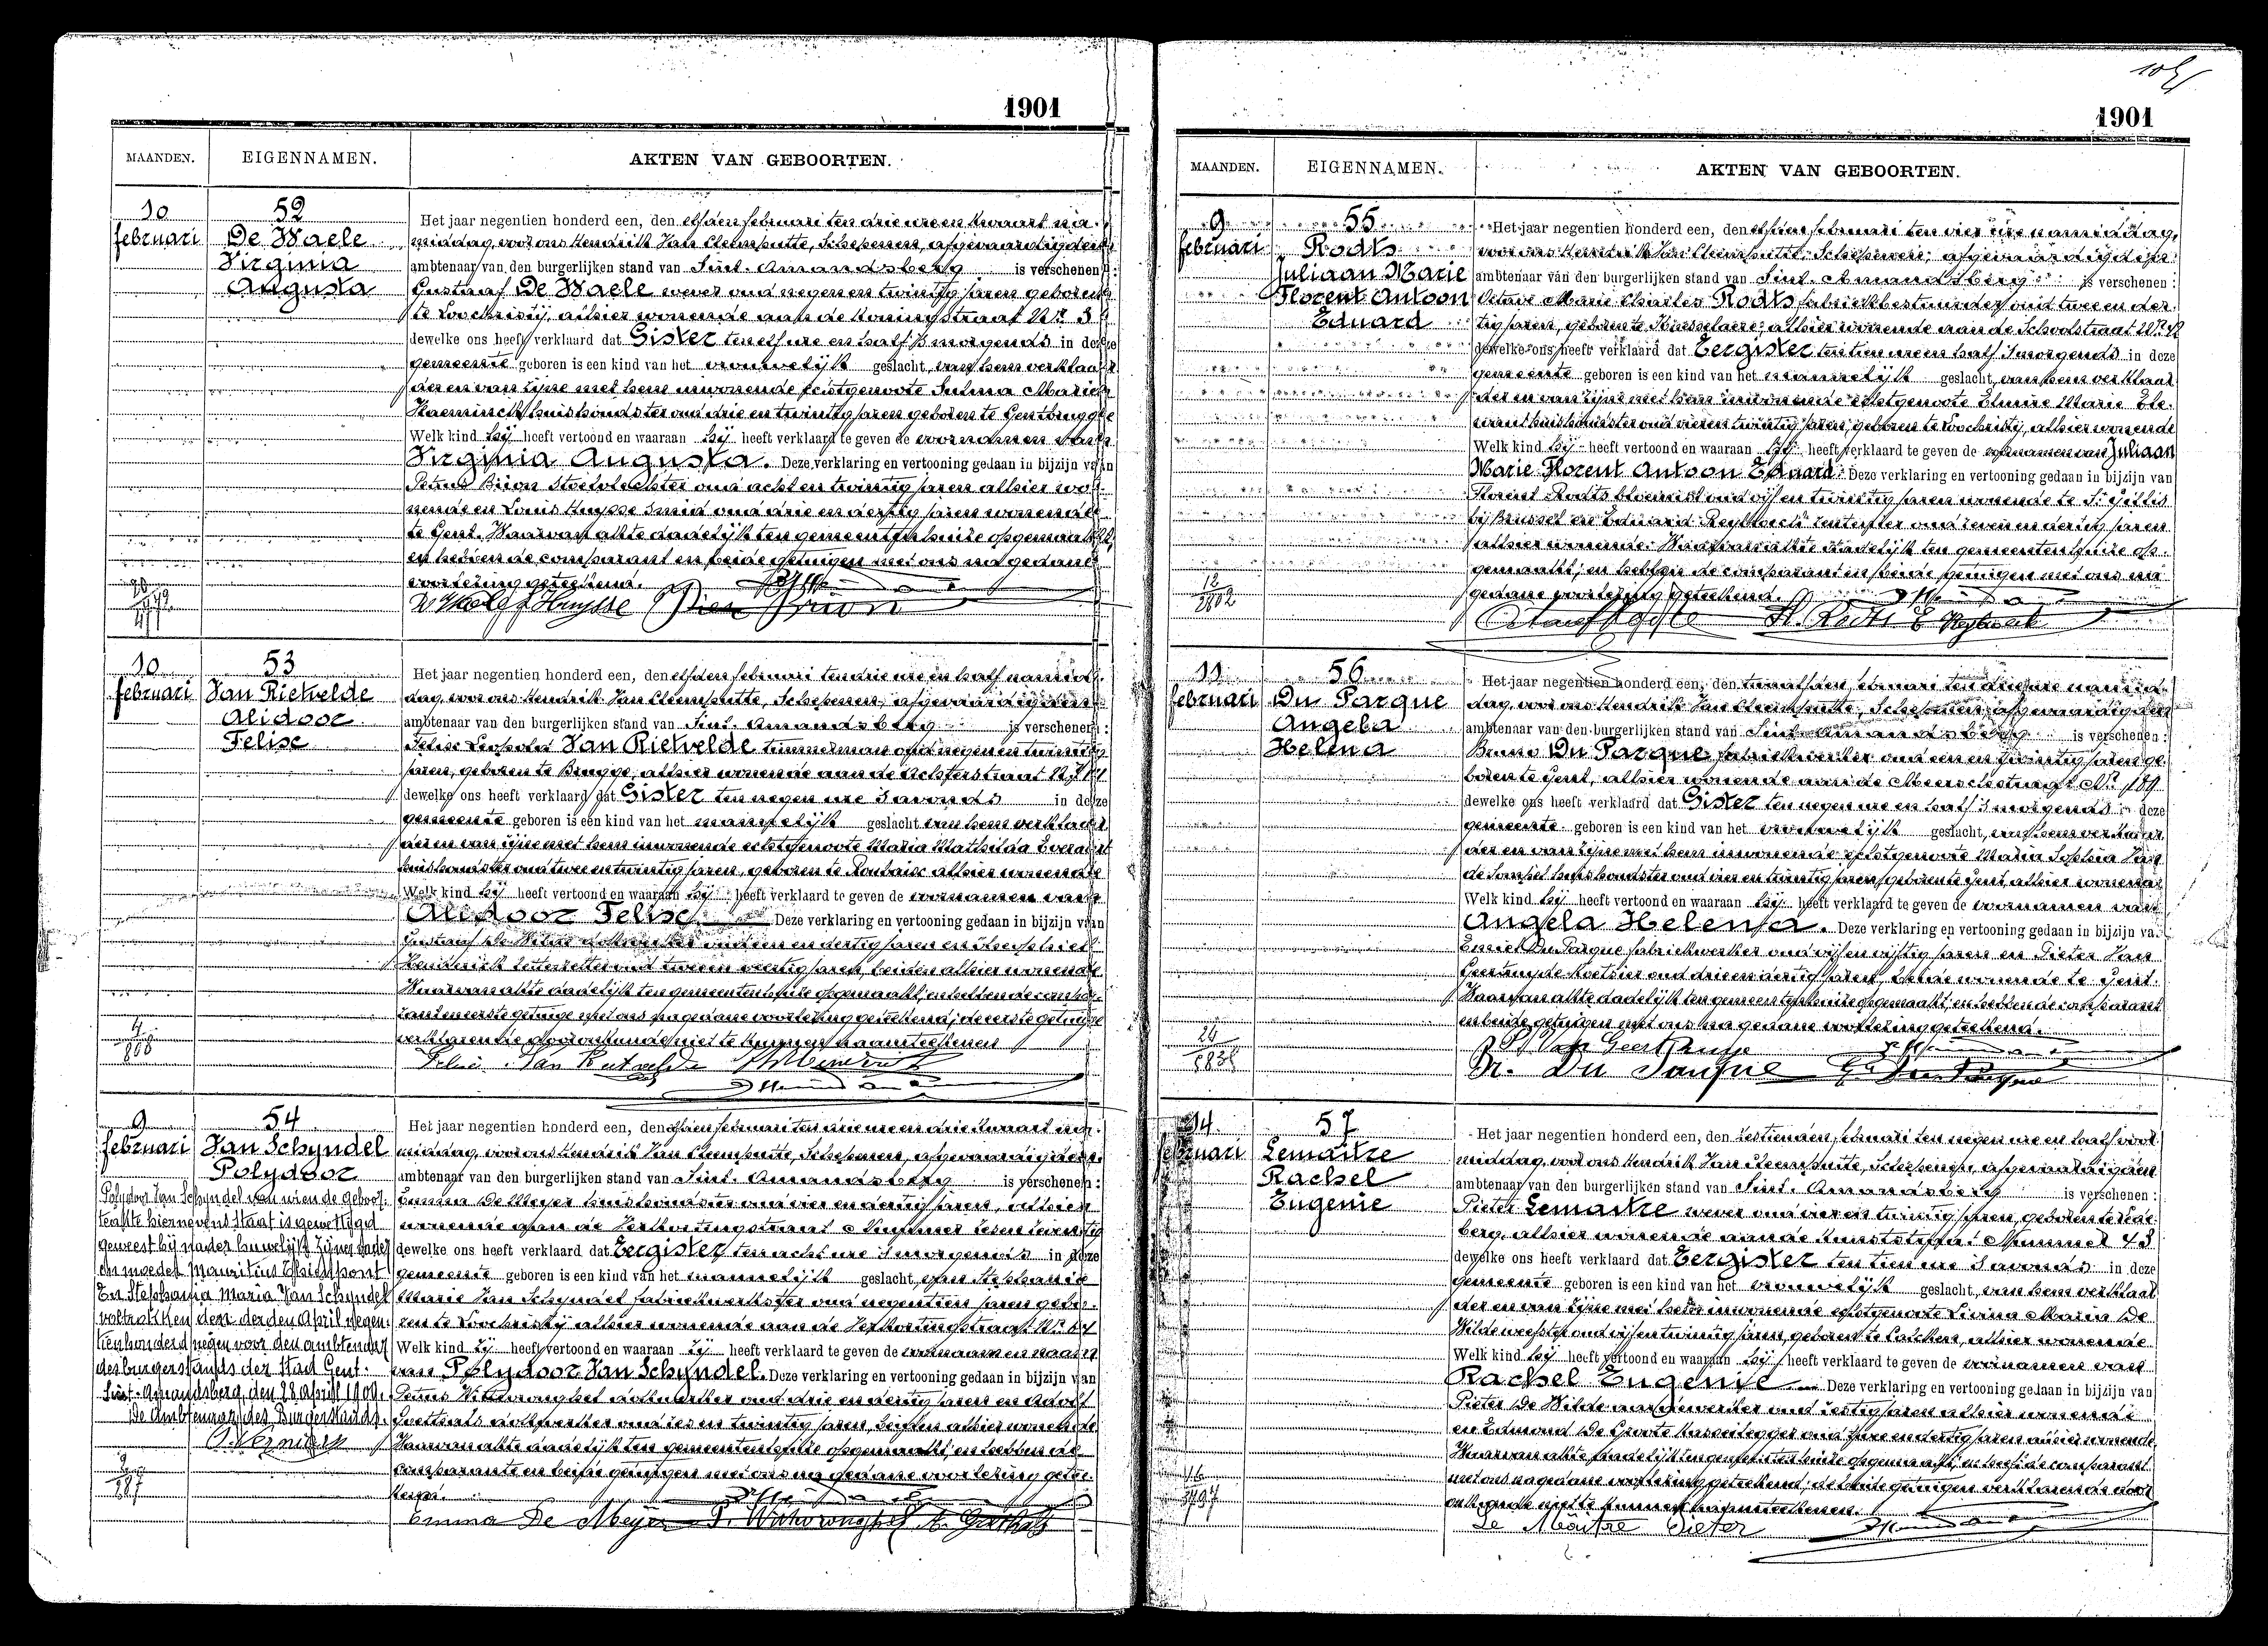 1901
MAANDEN. EIGENNAMEN. AKTEN VAN GEBOORTEN.
10 52 Het jaar negentien honderd een, den elfden februari ten drie ure en kwaart na-
februari De Waele middag, voor ons Hendrik Jan Cleemputte, Schepenen, afgevaardigden
Virginia ambtenaar van den burgerlijken stand van Sint-Amandsberg is verschenen :
Augusta Gustaaf De Waele wever oud negen en twintig jaren geboren
te Loochristij, alhier wonende aan de Koningstraat Nr 3
dewelke ons heeft verklaard dat Gister ten elf ure en half 's morgends in deze
gemeente geboren is een kind van het vrouwelijk geslacht, van hem verklaar-
der en van zijne met hem inwonende echtgenoote Sulma Marie
huishoudster oud drie en twintig jaren geboren te Gentbrugge
Welk kind hij heeft vertoond en waaraan hij heeft verklaard te geven de voornamen van
Virginia Augusta. Deze verklaring en vertooning gedaan in bijzijn van
Petrus Brion oud acht en twintig jaren alhier wo-
nende en Louis Huysse smid oud drie en dertig jaren wonende
te Gent. Waarvan akte dadelijk ten gemeentenhuize opgemaakt,
en hebben de comparant en beide getuigen met ons na gedane
voorlezing geteekend.
10 53 Het jaar negentien honderd een, den elfden februari ten drie ure en half namid-
februari Van Rietvelde dag, voor ons Hendrik Jan Cleemputte, Schepenen, afgevaardigden
Alidoor ambtenaar van den burgerlijken stand van Sint-Amandsberg is verschenen :
Felise Felise Leopold Van Rietvelde timmerman oud negen en twintig
jaren, geboren te Brugge, alhier wonende aan de Achterstraat
dewelke ons heeft verklaard dat Gister ten negen ure 's avonds in deze
gemeente geboren is een kind van het mannelijk geslacht van hem verklaar-
der en van zijne met hem inwonende echtgenoote Maria Mathilda Everaert
huishoudster oud twee en twintig jaren, geboren te Roubaix alhier wonende
Welk kind hij heeft vertoond en waaraan hij heeft verklaard te geven de voornamen van
Alidoor Felise Deze verklaring en vertooning gedaan in bijzijn van
Gustaaf De Wilde oud een en dertig jaren en
letterzetter oud twee en veertig jaren, beiden alhier wonende
Waarvan akte dadelijk ten gemeentenhuize opgemaakt, en hebben de compa-
rant en eerste getuige met ons na gedane voorlezing geteekend, de
verklarende door onkunde niet te kunnen naamteekenen
9 54 Het jaar negentien honderd een, den elfden februari ten drie ure en drie kwaart na-
februari Van Schyndel middag, voor ons Hendrik Jan Cleemputte, Schepenen, afgevaardigden
Polydoor ambtenaar van den burgerlijken stand van Sint-Amandsberg is verschenen :
Emma De Meyer huishoudster oud vier en dertig jaren, alhier
wonende aan de Verkortingstraat Nummer
dewelke ons heeft verklaard dat Eergister ten acht ure 's morgends in deze
gemeente geboren is een kind van het mannelijk geslacht, van Stephanie
Marie Van Schyndel fabriekwerkster oud negentien jaren gebo-
ren te Loochristij alhier wonende aan de Verkortingstraat Nr
Welk kind zij heeft vertoond en waaraan zij heeft verklaard te geven de voornaam en naam
van Polydoor Van Schyndel. Deze verklaring en vertooning gedaan in bijzijn van
Petrus Wittevronghel dokwerker oud drie en dertig jaren en Adolf
Goethals dokwerker oud zes en twintig jaren, beiden alhier wonende
Waarvan akte dadelijk ten gemeentenhuize opgemaakt en hebben de
comparante en beide getuigen met ons na gedane voorlezing getee-
kend.
Emma De Meyer
Polydoor Van Schyndel van wien de geboor-
teakte hiernevens staat is gewettigd
geweest bij het huwelijk zijner vader
en moeder Mauritius
En Stephania Maria Van Schyndel
voltrokken den derden April negen-
tienhonderd negen voor den ambtenaar
des burgerstands der stad Gent.
Sint-Amandsberg, den 28 April 1909.
De Ambtenaar des Burgerstands.
1901
MAANDEN. EIGENNAMEN. AKTEN VAN GEBOORTEN.
9 55 Het jaar negentien honderd een, den elfden februari ten vier ure namiddag,
februari Rodts voor ons Hendrik Jan Cleemputte Schepenen, afgevaardigden
Juliaan Marie ambtenaar van den burgerlijken stand van Sint-Amandsberg is verschenen :
Florent Antoon Octave Marie Charles Rodts fabriekbestuurder oud twee en der-
Eduard tig jaren, geboren te alhier wonende aan de Schoolstraat Nr
dewelke ons heeft verklaard dat Eergister ten tien ure en half 's morgends in deze
gemeente geboren is een kind van het mannelijk geslacht, van hem verklaar-
der en van zijne met hem inwonende echtgenoote Elmire Marie
huishoudster oud vier en twintig jaren, geboren te Loochristij, alhier wonende
Welk kind hij heeft vertoond en waaraan hij heeft verklaard te geven de voornamen van Juliaan
Marie Florent Antoon Eduard. Deze verklaring en vertooning gedaan in bijzijn van
Florent Rodts bloemist oud vijf en twintig jaren wonende te St Gillis
bij Brussel en Eduard rentenier oud zeven en dertig jaren
alhier wonende. Waarvan akte dadelijk ten gemeentenhuize op-
gemaakt, en hebben de comparant en beide getuigen met ons na
gedane voorlezing geteekend.
11 56 Het jaar negentien honderd een, den twaalfden februari ten drie ure namid-
februari Du Parque dag, voor ons Hendrik Jan Cleemputte, Schepenen, afgevaardigden
Angela ambtenaar van den burgerlijken stand van Sint-Amandsberg is verschenen :
Helena Bruno Du Parque fabriekwerker oud een en twintig jaren ge-
boren te Gent, alhier wonende aan de Meerschstraat Nr 189
dewelke ons heeft verklaard dat Gister ten negen ure en half 's morgends deze
gemeente geboren is een kind van het vrouwelijk geslacht, van hem verklaar-
der en van zijne met hem inwonende echtgenoote Maria Sophia
huishoudster oud vier en twintig jaren, geboren te Gent, alhier wonende
Welk kind hij heeft vertoond en waaraan hij heeft verklaard te geven de voornamen van
Angela Helena. Deze verklaring en vertooning gedaan in bijzijn va.
Emiel Du Parque fabriekwerker oud vijf en vijftig jaren en Pieter Van
Geertruyde koetsier oud drie en dertig jaren, beide wonende te Gent.
Waarvan akte dadelijk ten gemeentenhuize opgemaakt, en hebben de comparant
en beide getuigen met ons na gedane voorlezing geteekend.
Br. Du Parque
14 57 Het jaar negentien honderd een, den zestienden februari ten negen ure en half voor-
februari Lemaitre middag, voor ons Hendrik Jan Cleemputte, Schepenen, afgevaardigden
Rachel ambtenaar van den burgerlijken stand van Sint-Amandsberg is verschenen :
Eugenie Pieter Lemaitre wever oud vier en twintig jaren, geboren te Lede-
berg, alhier wonende aan de Nummer 43
dewelke ons heeft verklaard dat Eergister ten tien ure 's avonds in deze
gemeente geboren is een kind van het vrouwelijk geslacht, van hem verklaar-
der en van zijne met hem inwonende echtgenoote Livina Maria De
Wilde weefster oud vijf en twintig jaren, geboren te Calcken, alhier wonende
Welk kind hij heeft vertoond en waaraan hij heeft verklaard te geven de voornamen van
Rachel Eugenie Deze verklaring en vertooning gedaan in bijzijn van
Pieter De Wilde oud zestig jaren alhier wonende
en Edmond De Groote kasseilegger oud twee en dertig jaren alhier wonende
Waarvan akte dadelijk ten gemeentenhuize opgemaakt, en heeft de comparant
met ons na gedane voorlezing geteekend, de beide getuigen verklarende door
onkunde niet te kunnen naamteekenen.
Le Maitre Pieter